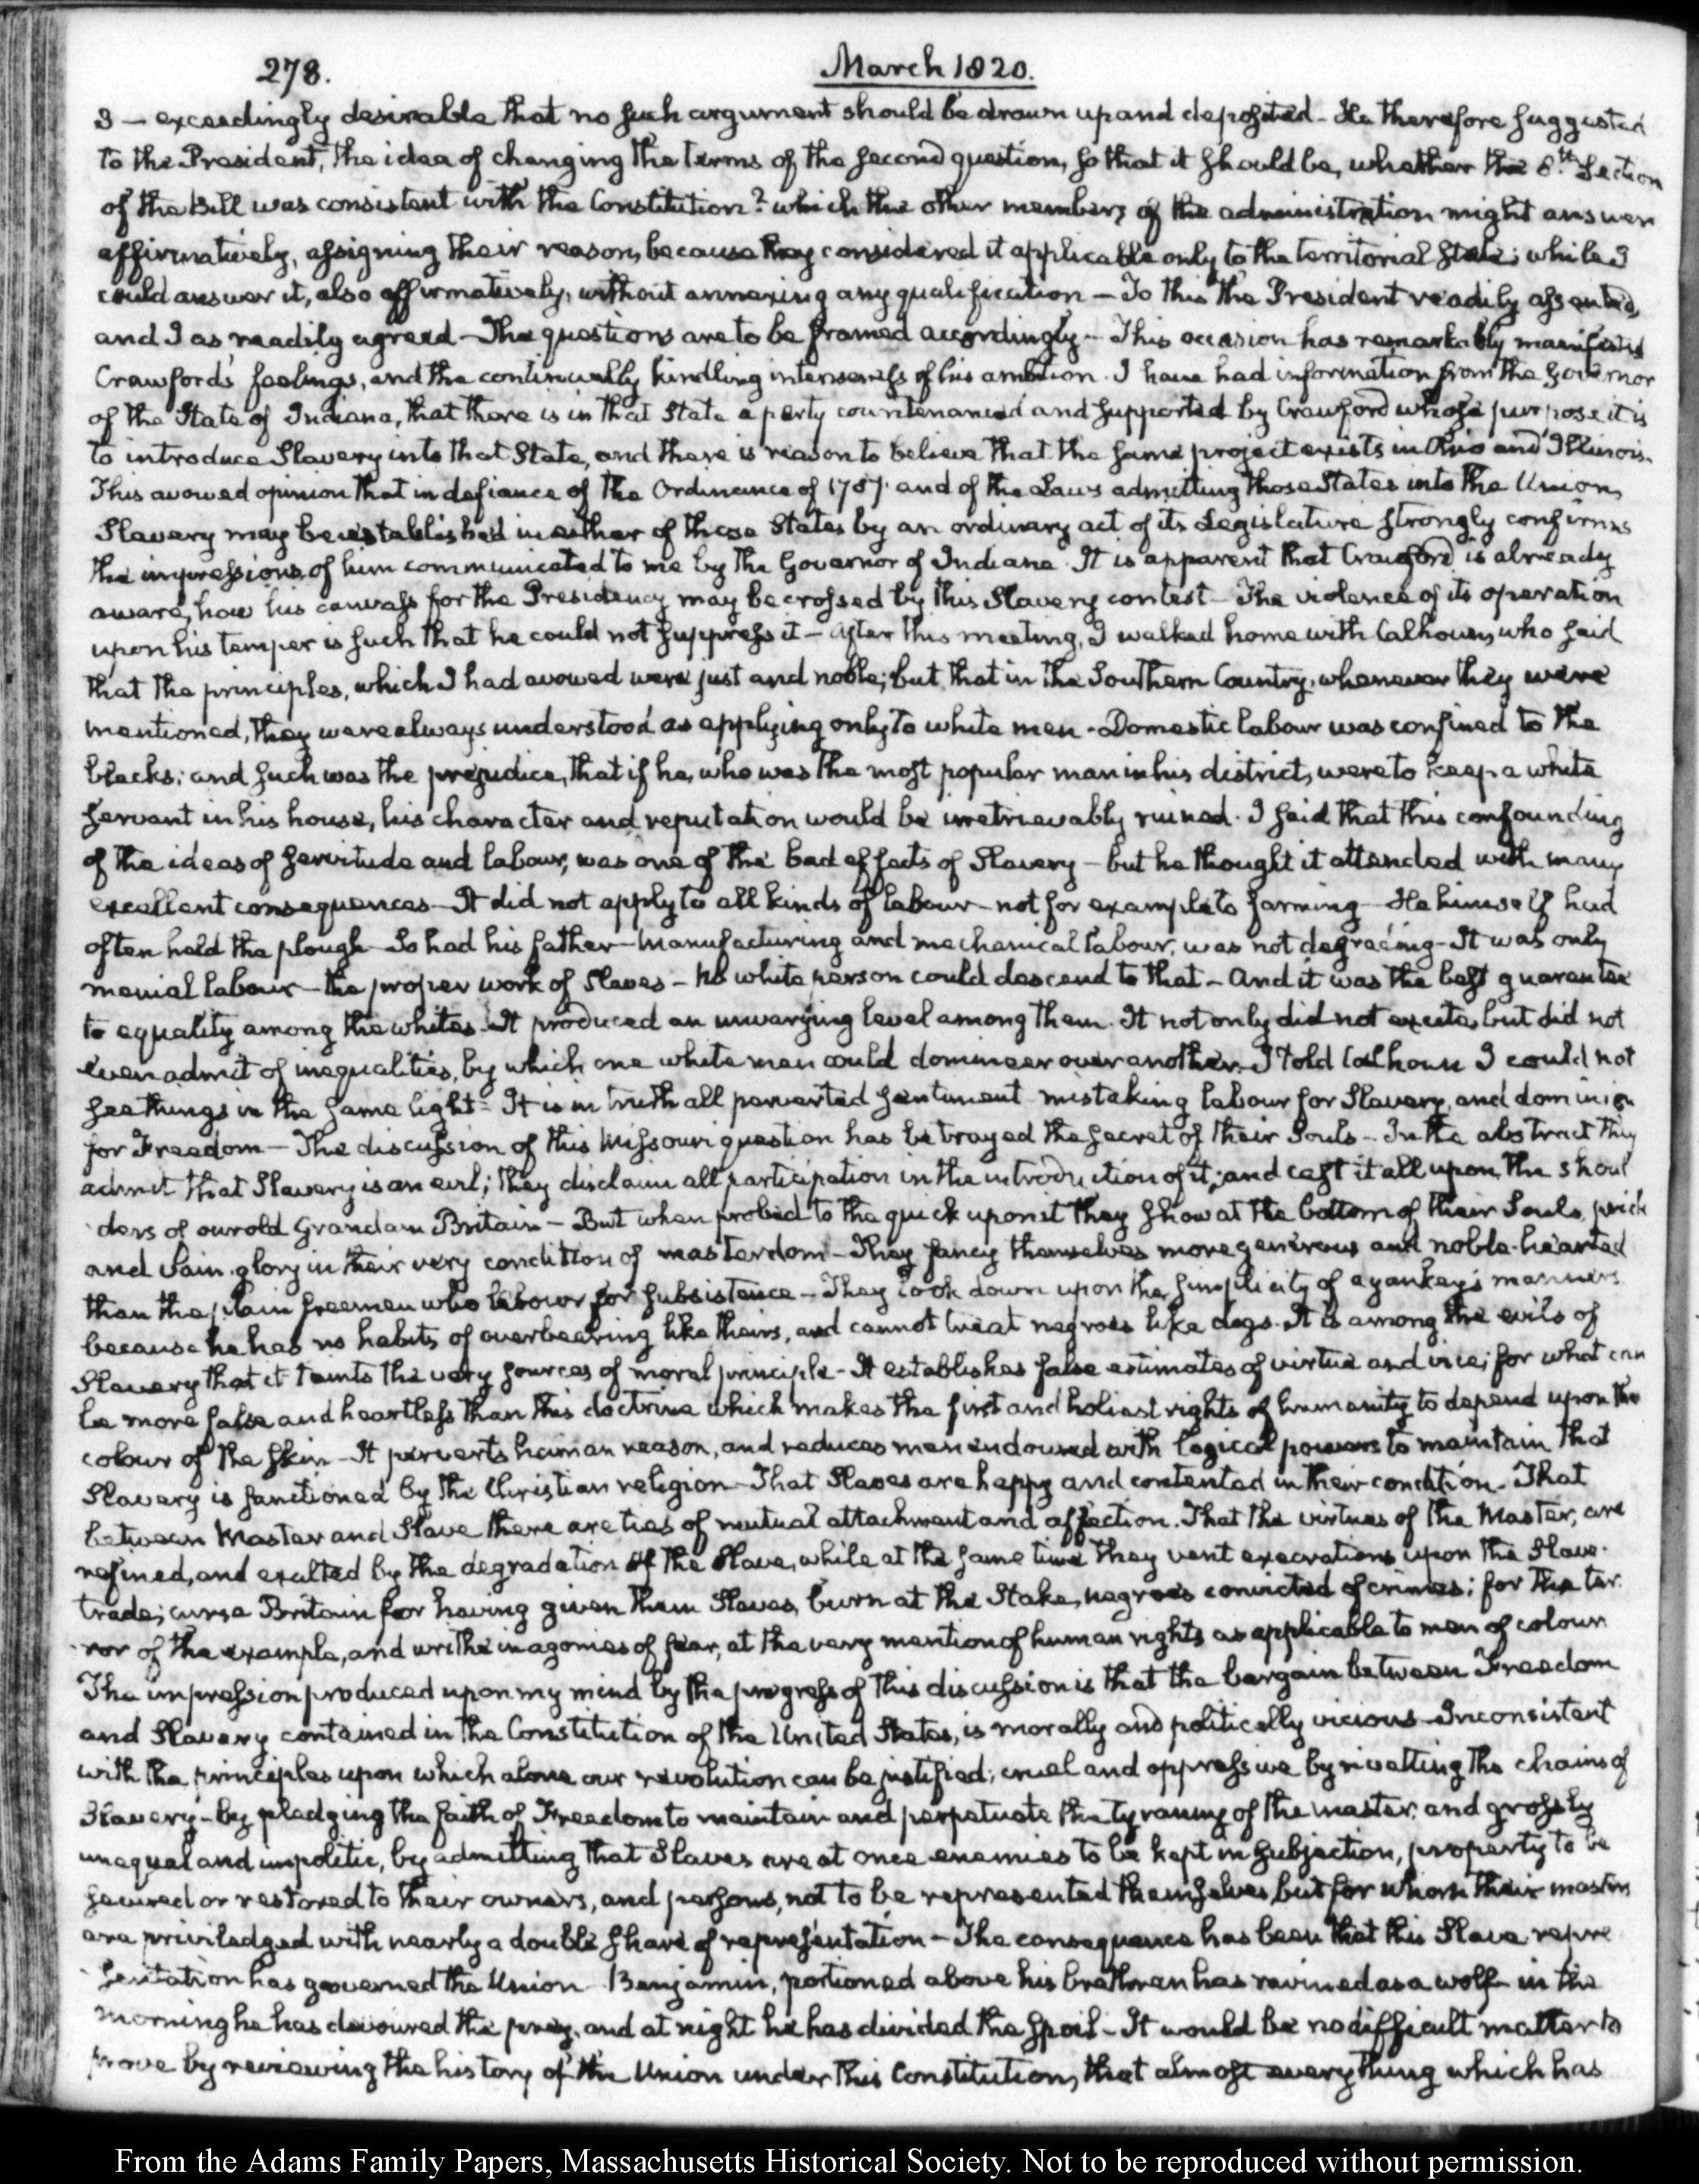 278.
March 1820.
3 — exceedingly desirable that no such argument should be drawn up and deposited - He therefore suggested
to the President, the idea of changing the terms of the second question, so that it should be, whether the 8.th Section
of the Bill was consistent with the Constitution? which the other members of the administration might answer
affirmatively, assigning their reason, because they considered it applicable only to the territorial State; while I
could answer it, also affirmatively, without annexing any qualification — To this the President readily assented,
and I as readily agreed — The questions are to be framed accordingly - This occasion has remarkably manifested
Crawford's feelings, and the continually kindling intenseness of his ambition. I have had information from the Governor
of the State of Indiana, that there is in that State a party countenanced and supported by Crawford whose purpose it is
to introduce Slavery into that State, and there is reason to believe that the same project exists in Ohio and Illinois.
This avowed opinion that in defiance of the Ordinance of 1787. and of the Laws admitting those States into the Union,
Slavery may be established in either of those States by an ordinary act of its Legislature strongly confirms
the impressions of him communicated to me by the Governor of Indiana. It is apparent that Crawford is already
aware, how his canvass for the Presidency may be crossed by this Slavery contest - The violence of its operation
upon his temper is such that he could not suppress it - After this meeting, I walked home with Calhoun, who said
that the principles, which I had avowed were just and noble; but that in the Southern Country, whenever they were
mentioned, they were always understood as applying only to white men - Domestic labour was confined to the
blacks; and such was the prejudice, that if he, who was the most popular man in his district, were to keep a white
servant in his house, his character and reputation would be irretrievably ruined. I said that this confounding
of the ideas of servitude and labour, was one of the bad effects of Slavery - but he thought it attended with many
excellent consequences - It did not apply to all kinds of labour - not for example to farming - He himself had
often held the plough - So had his father - Manufacturing and mechanical labour, was not degrading - It was only
menial labour - the proper work of Slaves - No white person could descend to that - And it was the best guarantee
to equality among the whites. It produced an unvarying level among them. It not only did not excite, but did not
even admit of inequalities, by which one white man could domineer over another - I told Calhoun I could not
see things in the same light - It is in truth all perverted sentiment - mistaking labour for Slavery, and dominion
for Freedom - The discussion of this Missouri question has betrayed the secret of their Souls - In the abstract they
admit that Slavery is an evil; they disclaim all participation in the introduction of it; and cast it all upon the shoul
ders of our old Grandam Britain - But when probed to the quick upon it they show at the bottom of their Souls, pride
and vain-glory in their very condition of masterdom - They fancy themselves more generous and noble-hearted
than the plain freemen who labour for subsistence - They look down upon the simplicity of a yankey's manners
because he has no habits of overbearing like theirs, and cannot treat negroes like dogs. It is among the evils of
Slavery that it taints the very sources of moral principle - It establishes false estimates of virtue and vice; for what can
be more false and heartless than this doctrine which makes the first and holiest rights of humanity to depend upon the
colour of the skin - It perverts human reason, and reduces men endowed with logical powers to maintain that
Slavery is sanctioned by the Christian religion - That Slaves are happy and contented in their condition - That
between Master and Slave there are ties of mutual attachment and affection. That the virtues of the Master, are
refined, and exalted by the degradation of the Slave, while at the same time they vent execrations upon the Slave-
trade; curse Britain for having given them Slaves, burn at the Stake, negroes convicted of crimes; for the ter-
ror of the example, and writhe in agonies of fear, at the very mention of human rights as applicable to men of colour
The impression produced upon my mind by the progress of this discussion is that the bargain between Freedom
and Slavery contained in the Constitution of the United States, is morally and politically vicious - Inconsistent
with the principles upon which alone our revolution can be justified; cruel and oppressive by rivetting the chains of
Slavery - by pledging the faith of Freedom to maintain and perpetuate the tyranny of the master: and grossly
unequal and impolitic, by admitting that Slaves are at once enemies to be kept in subjection, property to be
secured or restored to their owners, and persons, not to be represented themselves, but for whom their masters
are priviledged with nearly a double share of representation - The consequence has been that this Slave repre
sentation has governed the Union - Benjamin, portioned above his brethren has ravined as a wolf - in the
morning he has devoured the prey, and at night he has divided the spoil - It would be no difficult matter to
prove by reviewing the history of the Union under this Constitution, that almost every thing which has
From the Adams Family Papers, Massachusetts Historical Society. Not to be reproduced without permission.